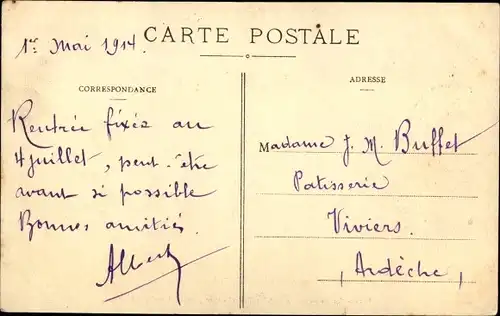 1er Mai 1914.
CARTE POSTALE
CORRESPONDANCE
Rentrée fixée au
4 juillet, peut-être
avant si possible
Bonnes amitiés.
Albert
ADRESSE
Madame J. M. Buffet
Patisserie
Viviers.
(Ardèche)